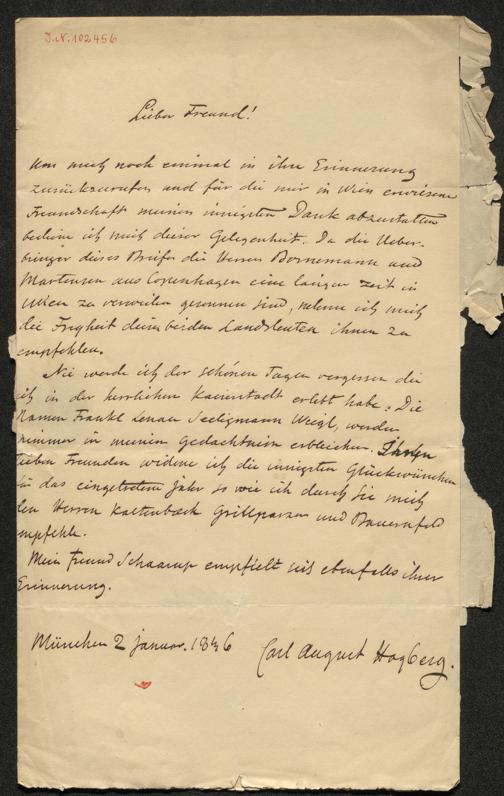 J.N. 102456
Lieber Freund!
Um mich noch einmal in ihre Erinnerung
zurückzurufen und für die mir in Wien erwiesene
Freundschaft meinen innigsten Dank abzustatten
bediene ich mich dieser Gelegenheit. Da die Ueber-
bringer dieses Briefes die Herren Bornemann und
Martensen aus Copenhagen eine lange Zeit in
Wien zu verweilen gesonnen sind, nehme ich mich
die Freyheit diese beiden Landsleuten ihnen zu
empfehlen.
Nie werde ich der schönen Tagen vergessen die
ich in der herrlichen Kaiserstadt erlebt habe: Die
Namen Frankl Lenau Seeligmann Weigl, werden
nimmer in meinem Gedächtnisse erbleichen. Diesen
lieben Freunden widme ich die innigsten Glückwünschen
für das eingetretene Jahr so wie ich durch Sie mich
den Herren Kaltenbæck Grillparzer und Bauernfeld
empfehle.
Mein Freund Schaarup empfielt sich ebenfalls ihrer
Erinnerung.
München 2 januar. 1836 Carl August Hagberg.